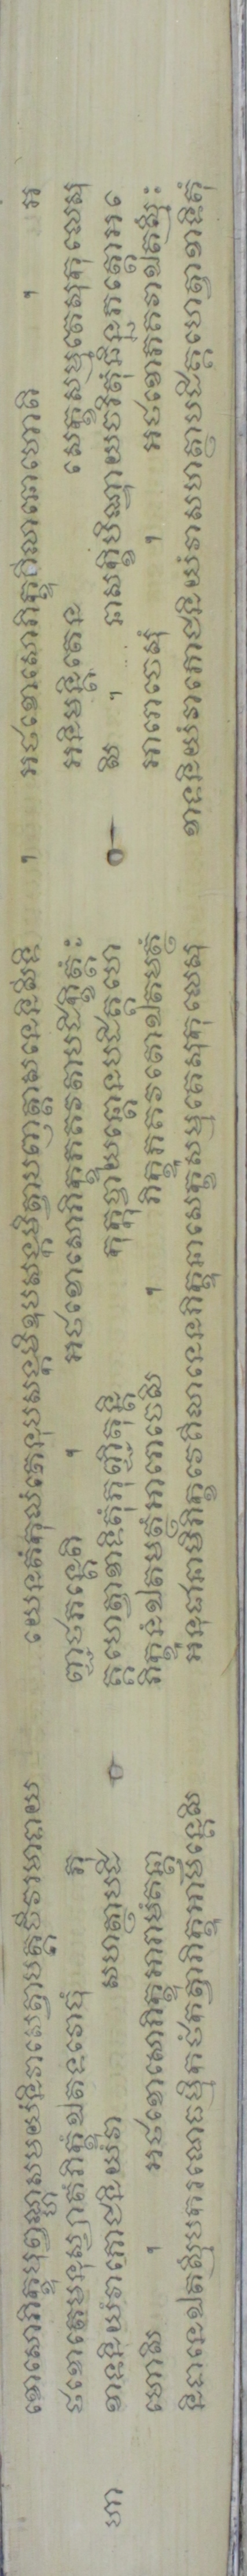 ខោសោភិក្ខុបុព្វណ្ហសមយំនិវាសេត្វាបត្តចីវរមាទាយ យេនតំកុលំតេនុបសង្កមិឧបសង្កមិត្វាបញ្ញត្តាសនេនិសីទិ ។ អថខោសោភិក្ខុគីលាណោហោតិ ។ អ
ថខោតេមនុស្សាតំភិក្ខុំឯតទវោចុំ ភុ ញ្ជថភន្តេតិ ។ អថខោសោភិក្ខុភគវតាបដិក្ខិត្តំះ អនិមន្តិតេន សេក្ខសម្មតេសុកុលេសុ
ហា ខាទនិយំវាភោជនិយំវា សហត្ថាបដិ គ្គហេត្វាខាទិតុំភុញ្ជិតុន្តិ កុក្កុច្ចាយន្តោនបដិគ្គហេ សិ ។ នាសក្ខិបិណ្ឌាយចរិតុំឆិន្នភត្តោអ
ហោសិ ។ អថខោសោភិក្ខុអារាមំគន្ត្វា ភិក្ខូនំឯតមត្ថំអារោចេសិ ។ ភិក្ខូភគវតោឯតមត្ថំ អារោចេសុំ ។ អថខោភគវាឯតស្មិំះ
និទានេឯតស្មិំបករណេធម្មិកថំកត្វាភិក្ខូអាមន្តេសិ អនុជានាមិភិក្ខវេគីលានេនភិក្ខុនាសេក្ខសម្មតេសុកុលេសុ ខាទនិយំវាភោជនិយំវាសហត្ថាបដិគ្គហេត្វាខាទិតុំ